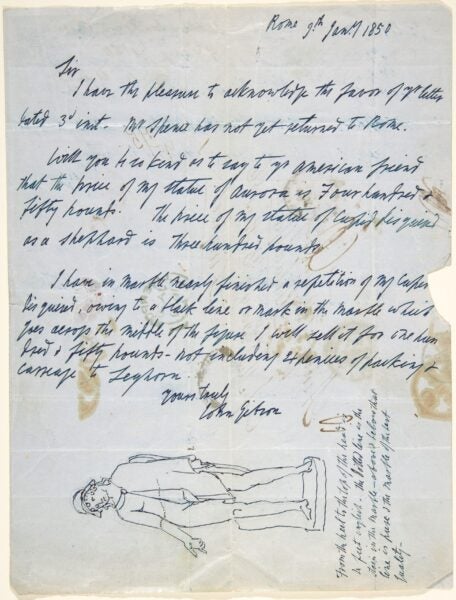 Rome 9th Jany 1850
Sir
I have the pleasure to acknowledge the favor of yr letter
dated 3d inst. Mr Spence has not yet returned to Rome.
Will you be so kind as to say to yr american friend
that the price of my statue of Aurora is Four hundred &
fifty pounds. The price of my statue of Cupid disguised
as a shephard is Three hundred pounds.
I have in marble nearly finished a repetition of my Cupid
disguised, owing to a black line or mark in the marble which
goes across the middle of the figure I will sell it for one hun
dred & fifty pounds - not including expences of packing &
carriage to Leghorn.
Yours truly
John Gibson
From the heel to the top of the head is
feet english - the dotted line is the
stain in the marble - above & below that
line is pure & the marble of the best
quality -